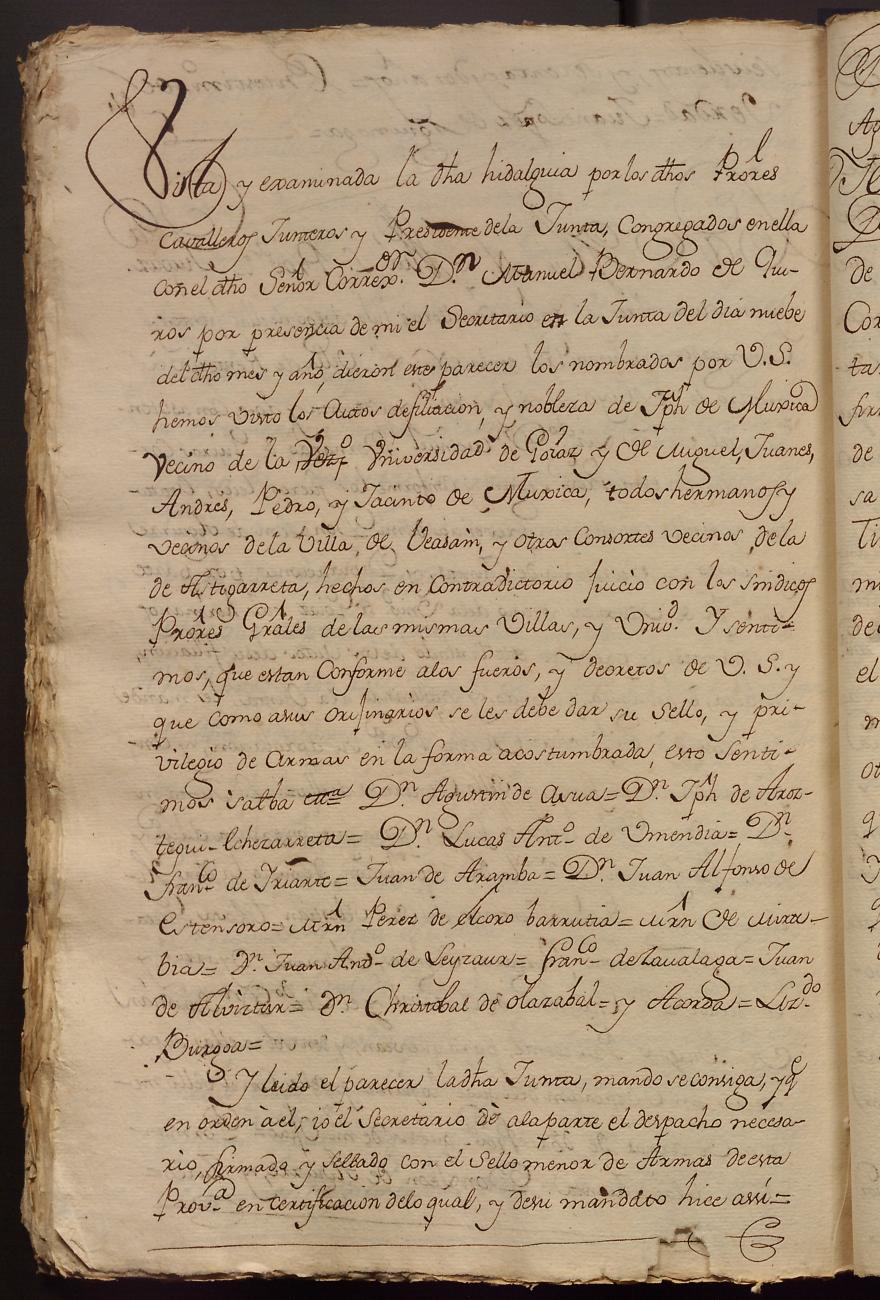 Vista y examinada la dha hidalguia por los dhos Prores
Cavalleros Junteros y Presidente dela Junta, Congregados en ella
con el dho Señor Correxor. Dn. Manuel Bernardo de Qui-
ros por presencia de mi el Secretario en la Junta del dia nuebe
del dho mes y año, dieron este parecer los nombrados por V. S.
hemos visto los Autos de filiacion, y nobleza de Jph de Muxica
Vecino de la Vniversidad de Goiaz y de Miguel, Juanes,
Andres, Pedro, y Jacinto de Muxica, todos hermanos y
vecinos de la Villa, de Veasain, y otros Consortes vecinos de la
de Astigarreta, hechos en Contradictorio juicio con los sindicos
Prores Grales de las mismas Villas, y Univd. Y senti=
mos, que estan Conforme a los fueros, y decretos de V. S. y
que como a sus orijinarios se les debe dar su Sello, y pri-
vilegio de Armas en la forma acostumbrada, esto senti-
mos salba etta= Dn. Agustin de Asua= Dn. Jph de Aroz-
tegui- Echezarreta= Dn. Lucas Anto. de Umendia= Dn.
Franco. de Iriarte= Juan de Aramba= Dn. Juan Alfonso de
Estensoro= Mrn Perez de elcoro barrutia= Mrn de Mira-
bia= Dn. Juan Anto. de Leyzaur= Franco. de Zavalaga= Juan
de Alviztur= Dn. Christobal de olazabal= y Acorda= Lizdo.
Burgoa=
Y leido el parecer la dha Junta, mando se consiga, y q
en orden à el, io el Secretario dè a la parte el despacho necesa-
rio, firmado y sellado con el Sello menor de Armas de esta
Prova. en certificacion de lo qual, y de su mandato hice assi=